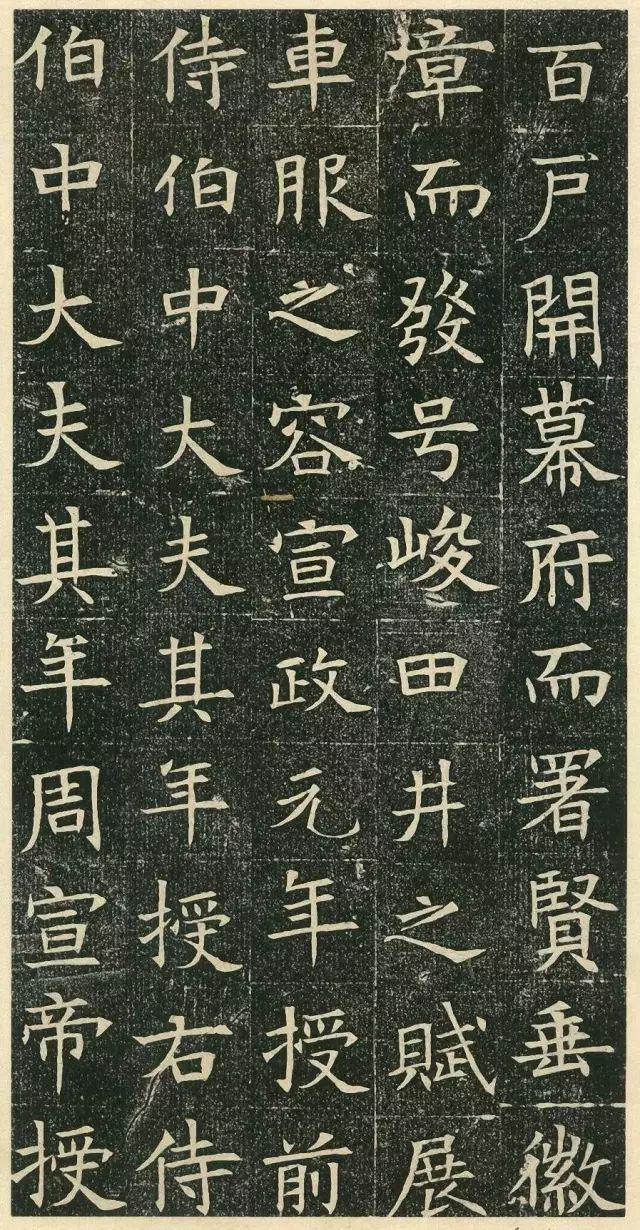 百戸開幕府而署賢垂徽
章而發号峻田井之賦展
車服之容宣政元年授前
侍伯中大夫其年授右侍
伯中大夫其年周宣帝授